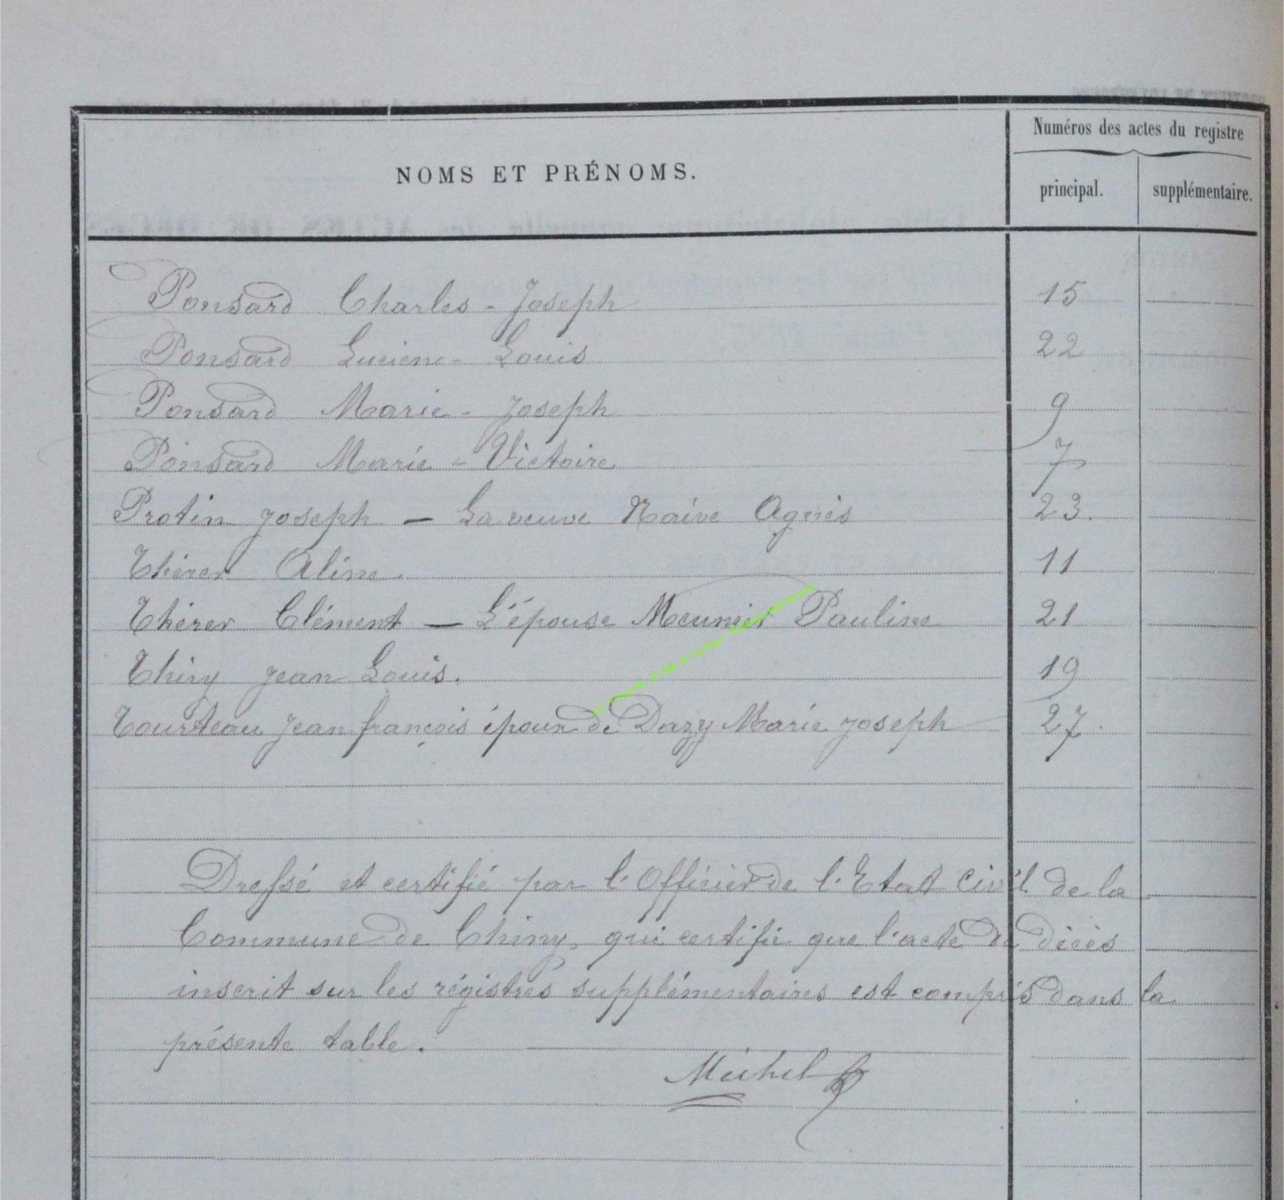 Numéros des actes du registre
NOMS ET PRÉNOMS.
principal. supplémentaire.
Ponsard Charles-Joseph 15
Ponsard Lucienc-Louis 22
Ponsard Marie-Joseph 9
Ponsard Marie-Victoire 7
Protin Joseph — La veuve Naive Agnès 23.
Thérer Aline. 11
Thérer Clément — L'épouse Meunier Pauline 21
Thiry Jean Louis. 19
Tourteau Jean françois époux de Dazy Marie Joseph 27.
Dressé et certifié par l'Officier de l'Etat Civil de la
Commune de Chiny, qui certifie que l'acte de décès
inscrit sur les régistres supplémentaires est compris dans la
présente table.
Michel